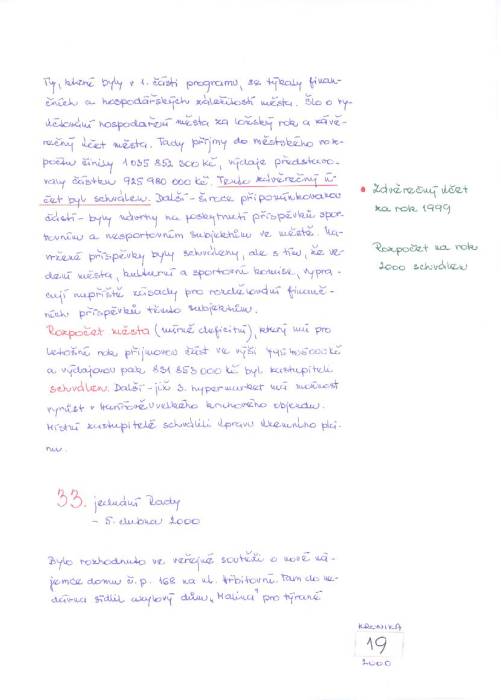 Ty, které byly v 1. části programu, se týkaly finan-
čních a hospodářských záležitostí města. Šlo o vy-
účtování hospodaření města za loňský rok a závě-
rečný účet města. Tady příjmy do městského roz-
počtu činily 1 035 853 300 Kč, výdaje představo-
valy částku 925 980 000 Kč. Tento závěrečný ú-
čet byl schválen. Další - široce připomínkovanou
částí - byly návrhy na poskytnutí příspěvků spor-
tovním a nesportovním subjektům ve městě. Na-
vržené příspěvky byly schváleny, ale s tím, že ve-
dení města, kulturní a sportovní komise, vypra-
cují napříště zásady pro rozdělování finanč-
ních příspěvků těmto subjektům.
Rozpočet města (mírně deficitní), který má pro
letošní rok příjmovou část ve výši Kč
a výdajovou pak 831 853 000 Kč byl zastupiteli
schválen. Další - již 3. hypermarket má možnost
vyrůst v Karlově u velkého kruhového objezdu.
Místní zastupitelé schválili úpravu územního plá-
nu.
• Závěrečný účet
za rok 1999
Rozpočet na rok
2000 schválen
33. jednání Rady
- 5. dubna 2000
Bylo rozhodnuto ve veřejné soutěži o nové ná-
jemce domu č. p. 168 na ul. Hřbitovní. Tam do ne-
dávna sídlil azylový dům „Halina" pro týrané
KRONIKA
19
2000